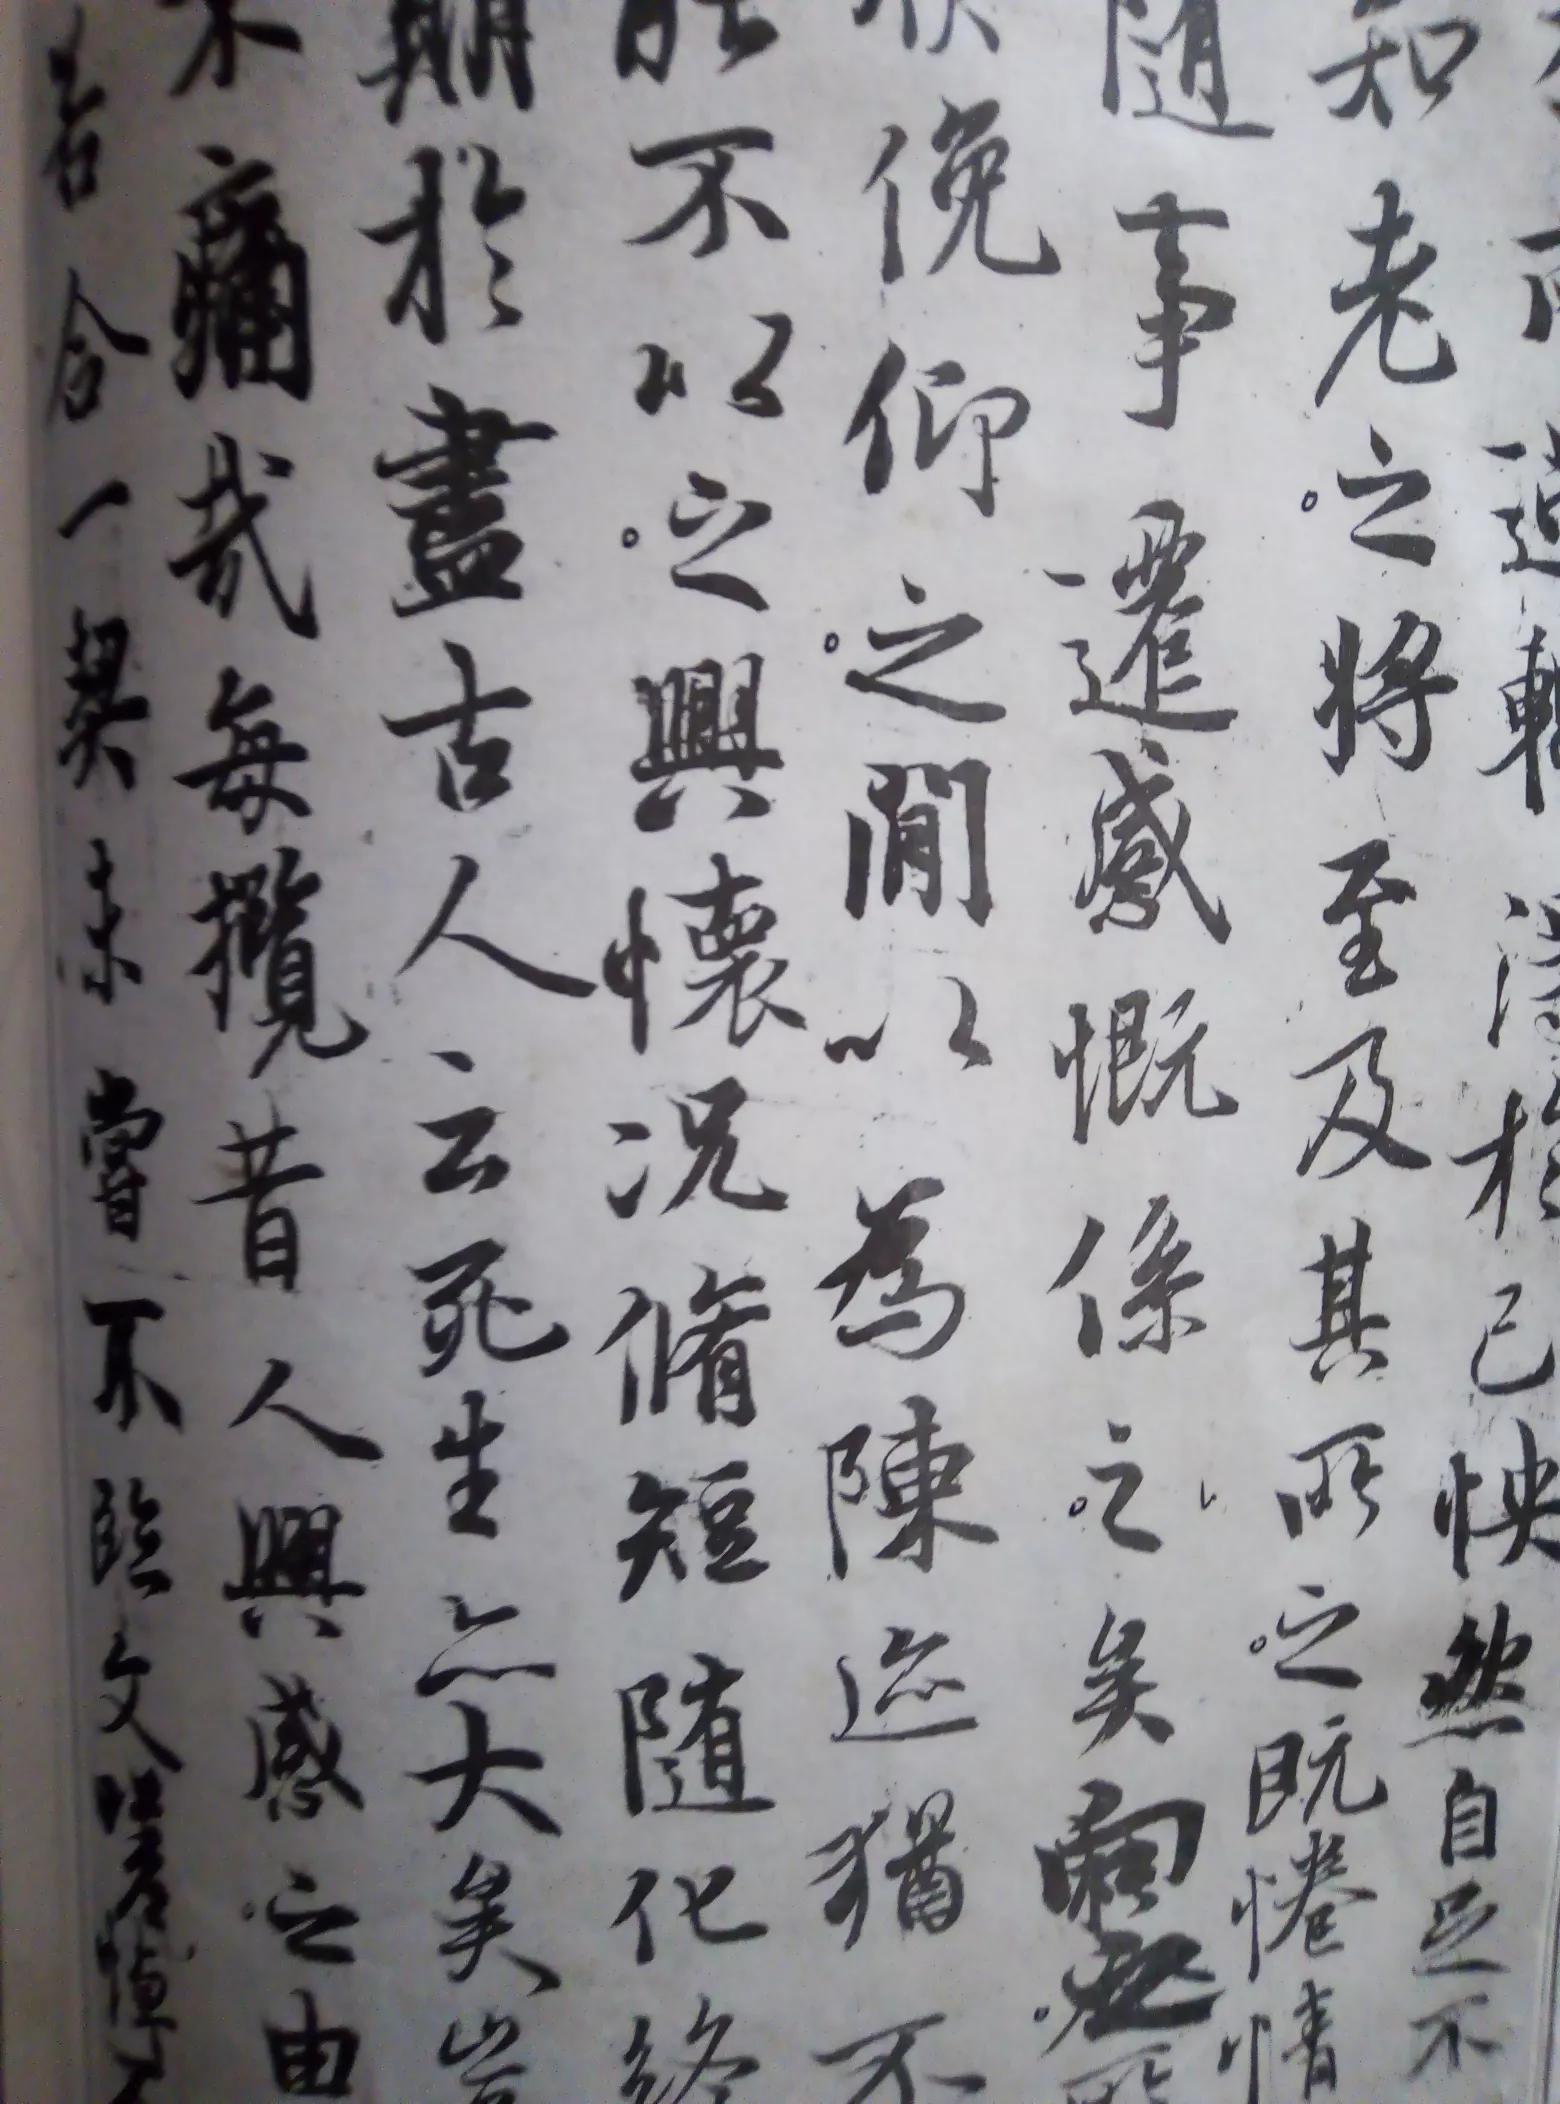 遇暫得於己怏然自足不
知老之將至及其所之既惓情
随事遷感慨係之矣向之所
俛仰之閒以為陳迹猶不
能不以之興懷況脩短随化終
期於盡古人云死生亦大矣豈
不痛哉每攬昔人興感之由
若合一契未嘗不臨文嗟悼不